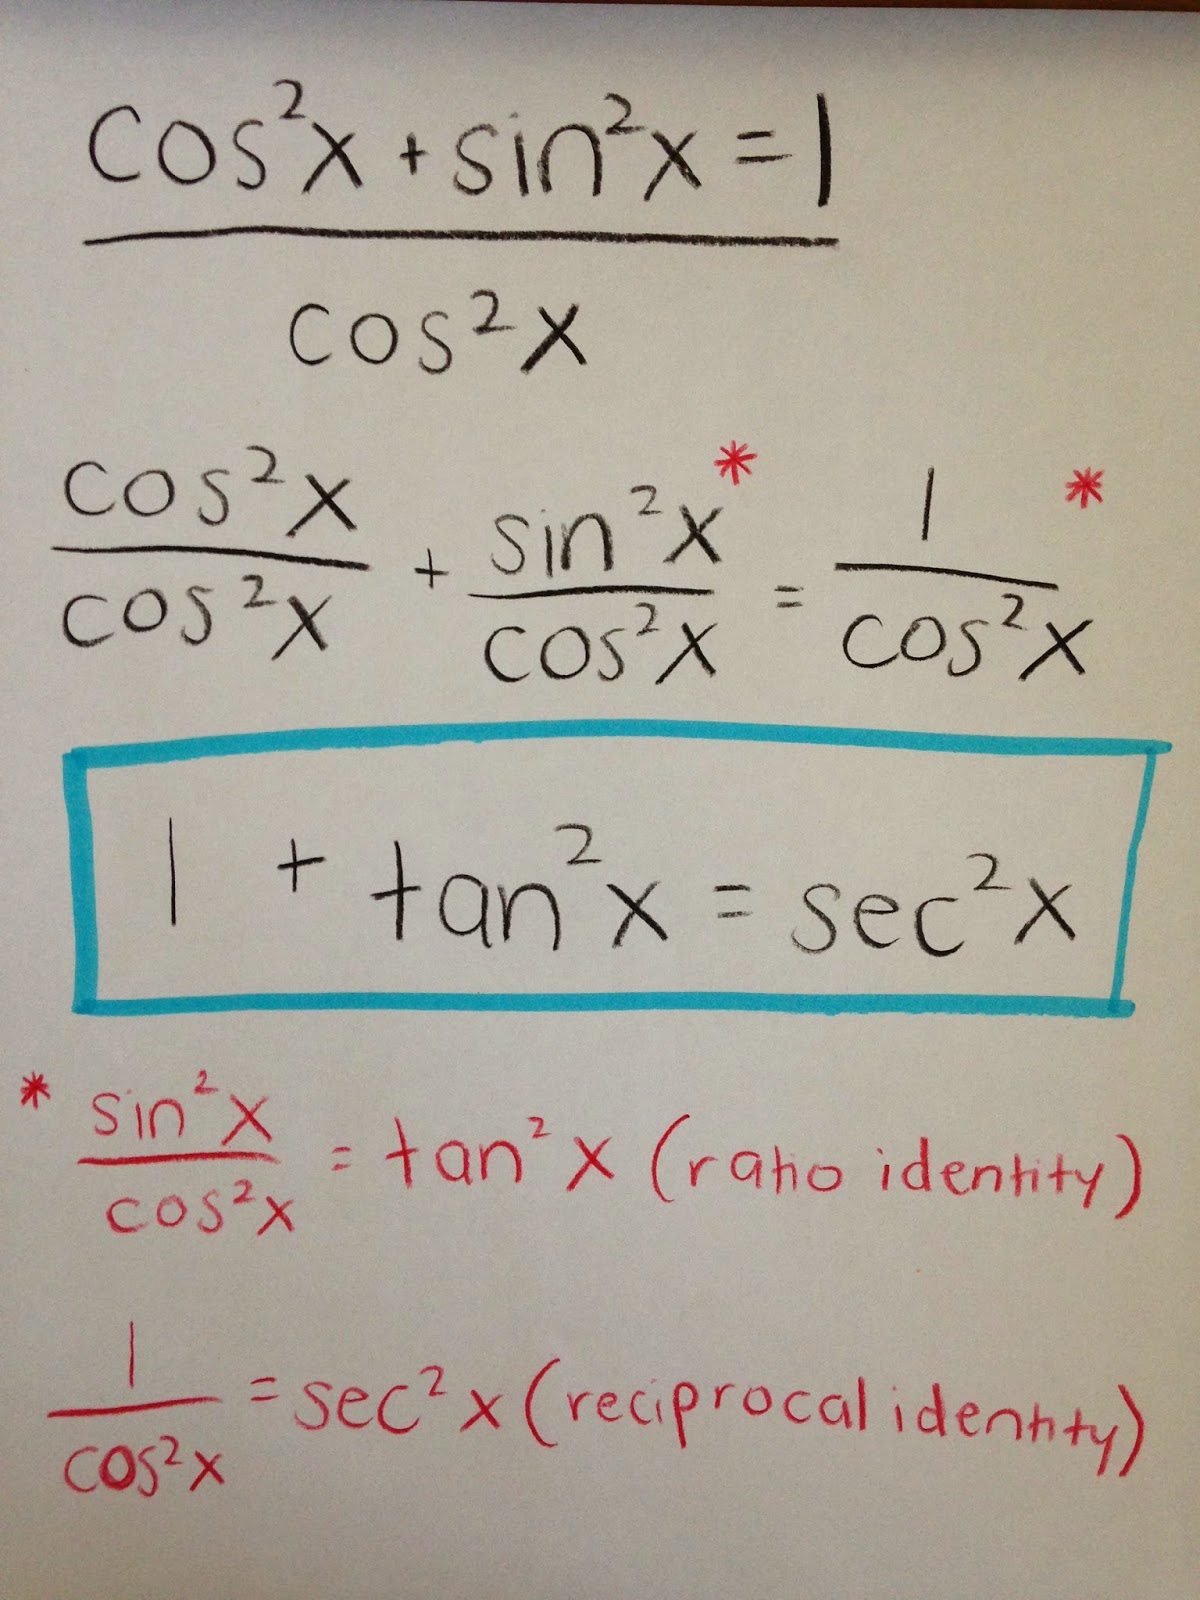 cos²x + sin²x = 1
cos²x
cos²x/cos²x + sin²x/cos²x * = 1/cos²x *
1 + tan²x = sec²x
* sin²x/cos²x = tan²x (ratio identity)
1/cos²x = sec²x (reciprocal identity)